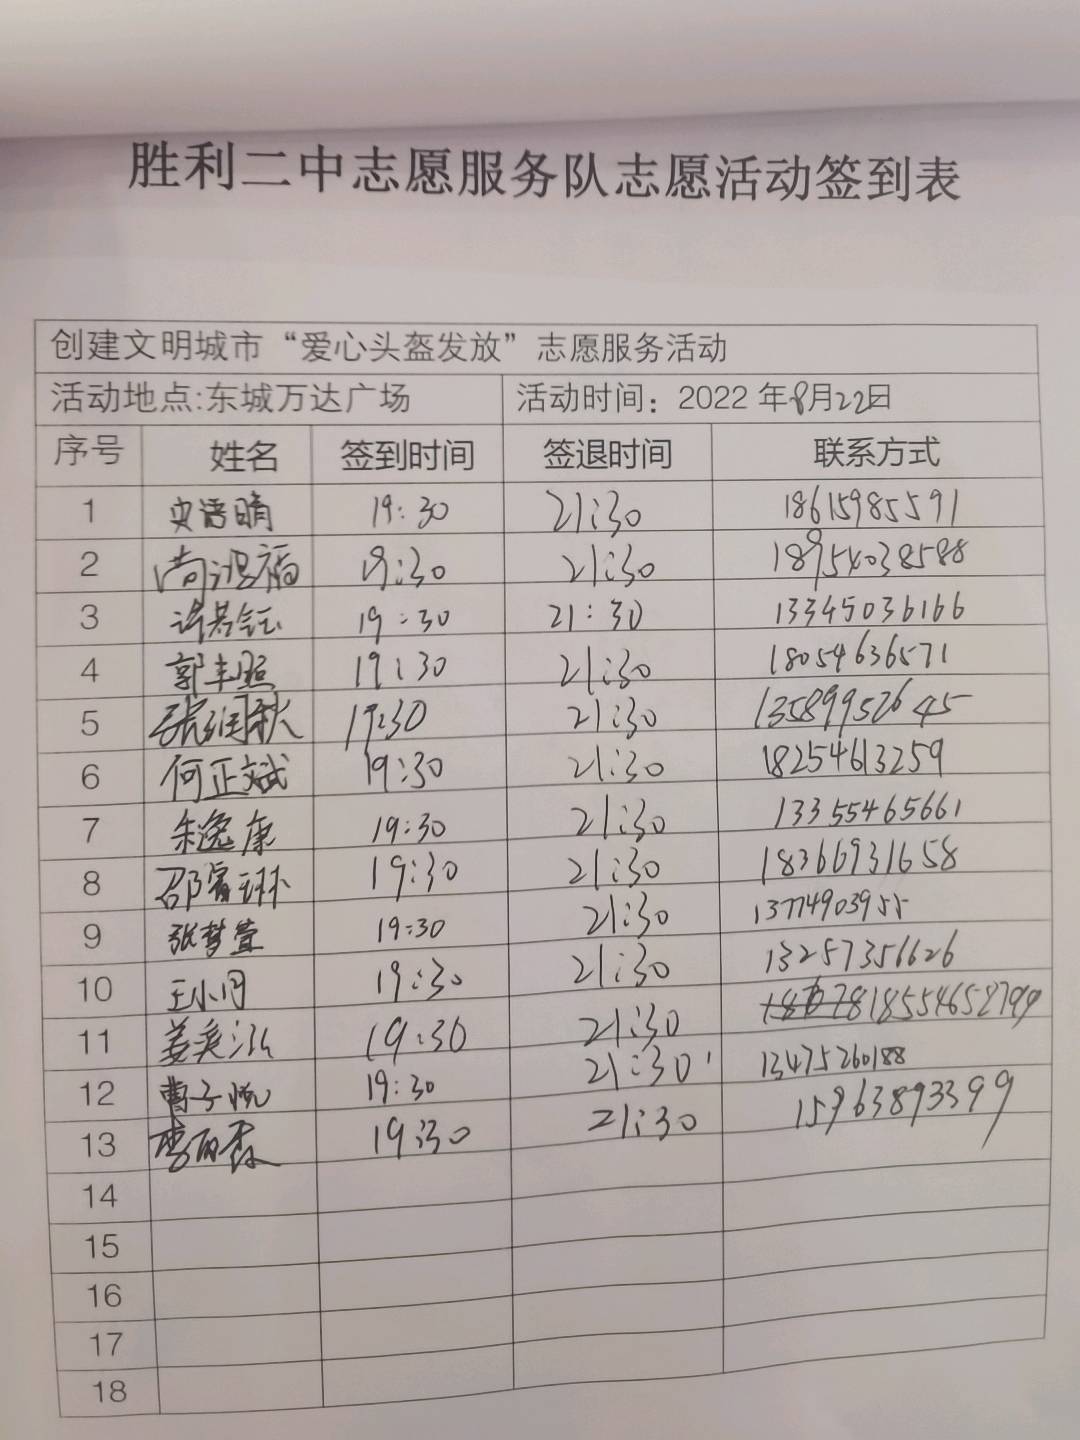 胜利二中志愿服务队志愿活动签到表
创建文明城市“爱心头盔发放”志愿服务活动
活动地点:东城万达广场 活动时间：2022年8月22日
序号 姓名 签到时间 签退时间 联系方式
1 史语晴 19:30 21:30 18615985591
2 尚鸿福 19:30 21:30 18954038588
3 许若钰 19:30 21:30 13345036166
4 郭丰熙 19:30 21:30 18054636571
5 张润秋 19:30 21:30 13589952645
6 何正斌 19:30 21:30 18254613259
7 朱逸康 19:30 21:30 13355465661
8 邵睿琳 19:30 21:30 18366931658
9 张梦萱 19:30 21:30 13774903955
10 王小月 19:30 21:30 13257356626
11 姜奕泓 19:30 21:30 18554658799
12 曹子悦 19:30 21:30 13475260188
13 李 19:30 21:30 15963893399
14
15
16
17
18